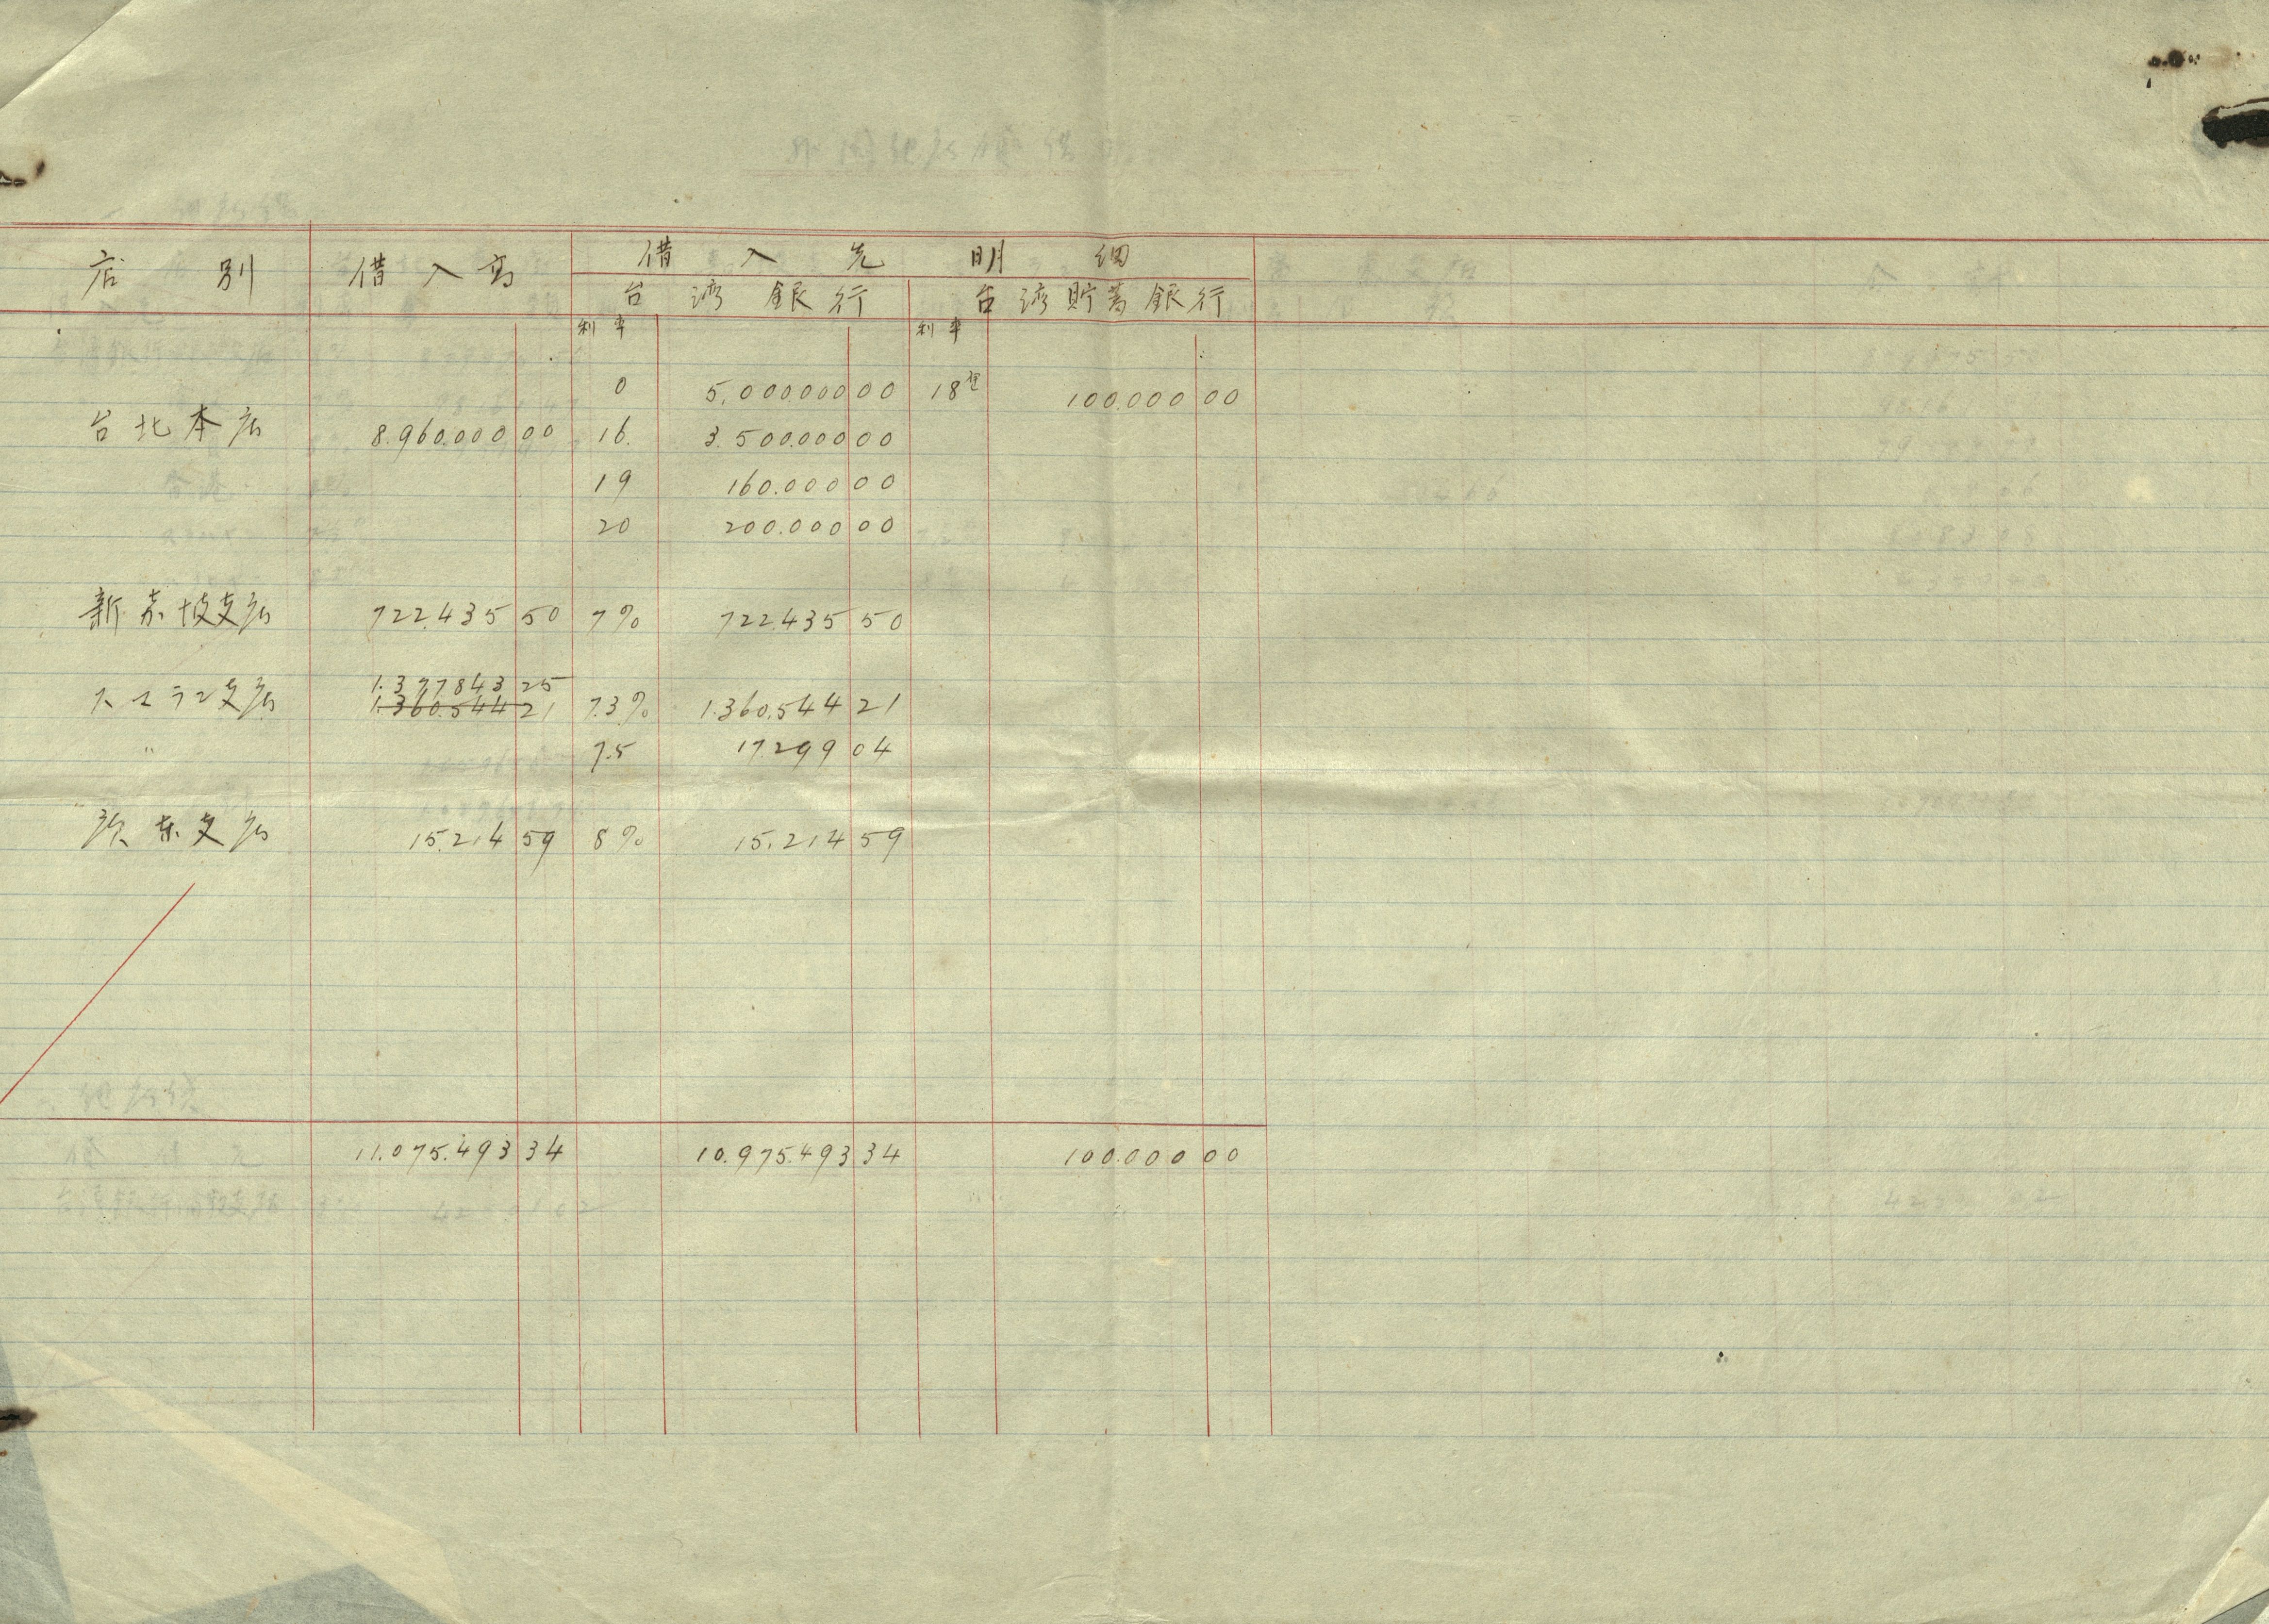 店別 借入高 借入先明細
台湾銀行 台湾貯蓄銀行
利率 利率
0 5,000.000 00 18厘 100.000 00
台北本店 8.960.000 00 16. 3.500.000 00
19 160.000 00
20 200.000 00
新嘉坡支店 722.435 50 7% 722.435 50
1.377843 25
スマラン支店 1.360.544 21 7.3% 1.360.544 21
〃 7.5 17.299 04
支店 15.214 59 8% 15.214 59
11.075.493 34 10.975.493 34 100.000 00